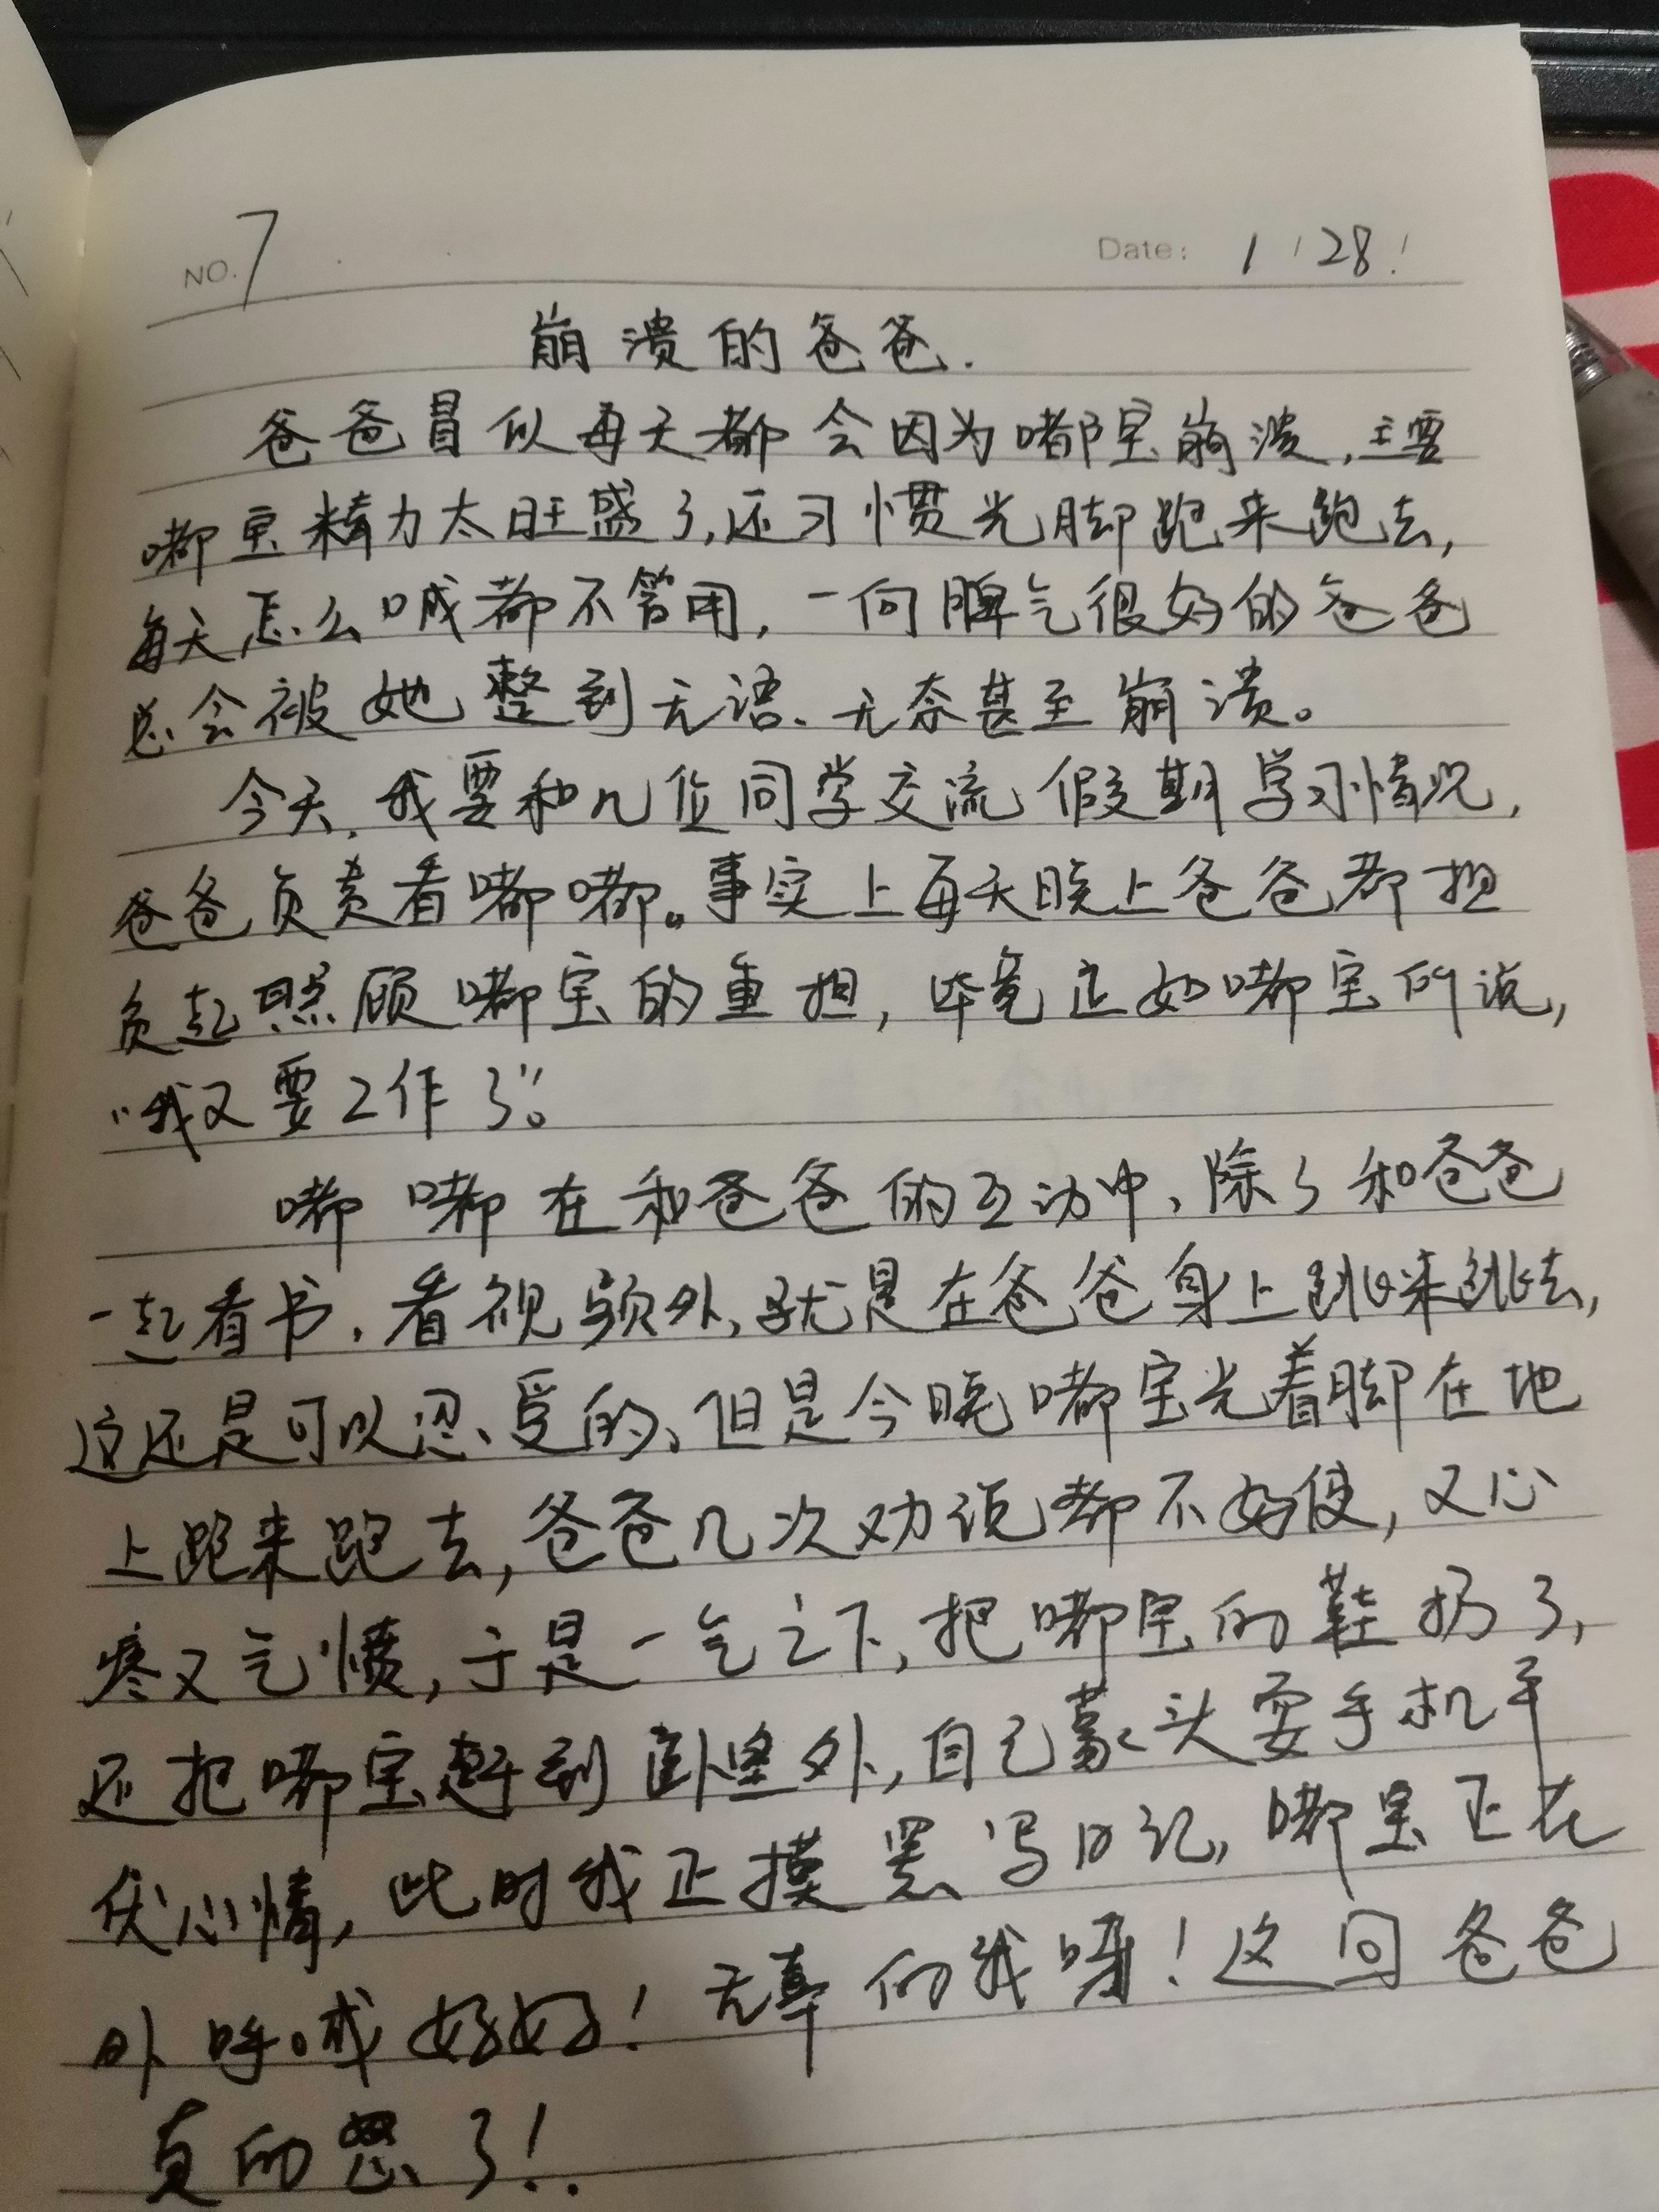 NO. 7
Date: 1 / 28 /
崩溃的爸爸.
爸爸冒似每天都会因为嘟宝崩溃,主要
嘟宝精力太旺盛了,还习惯光脚跑来跑去,
每天怎么喊都不管用,一向脾气很好的爸爸
总会被她整到无语、无奈甚至崩溃。
今天,我要和几位同学交流假期学习情况,
爸爸负责看嘟嘟。事实上每天晚上爸爸都担
负起照顾嘟宝的重担,毕竟正如嘟宝所说,
“哦又要工作了”。
嘟嘟在和爸爸的互动中,除了和爸爸
一起看书,看视频外,就是在爸爸身上跳来跳去,
这还是可以忍受的,但是今晚嘟宝光着脚在地
上跑来跑去,爸爸几次劝说都不好使,又心
疼又气愤,于是一气之下,把嘟宝的鞋扔了,
还把嘟宝赶到卧室外,自己蒙头耍手机平
伏心情,此时我正摸黑写日记,嘟宝正在
外呼喊妈妈!无辜的我呀!这回爸爸
真的怒了!